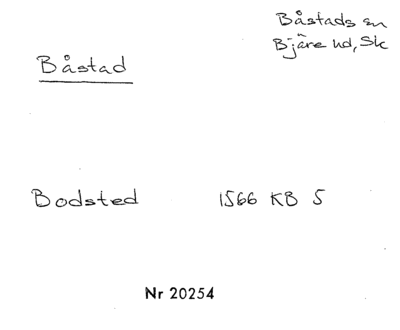 Båstads sn
Bjäre hd, Sk
Båstad
Bodsted 1566 KB 5
Nr 20254